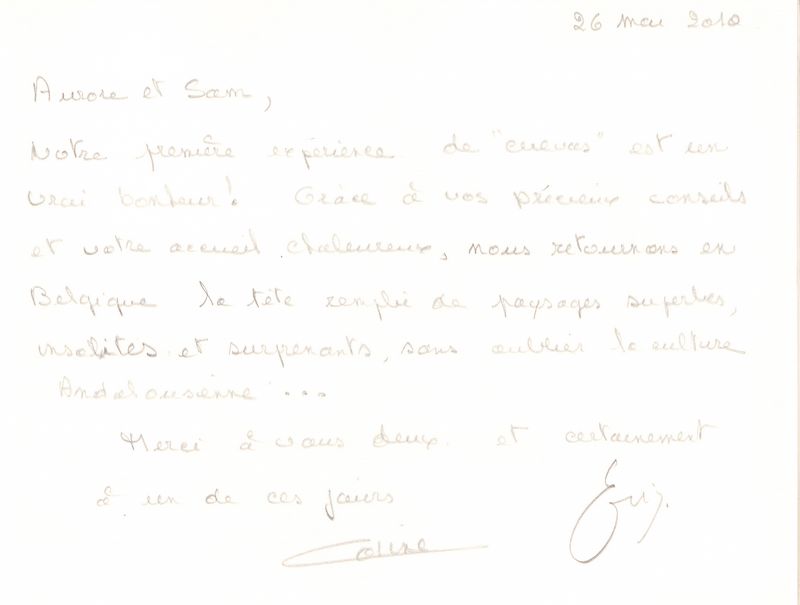 26 mai 2010
Aurore et Sam,
Notre première expérience de "cuevas" est un
vrai bonheur! Grâce à vos précieux conseils
et votre accueil chaleureux, nous retournons en
Belgique la tête remplie de paysages superbes,
insolites et surprenants, sans oublier la culture
Andalousienne ...
Merci à vous deux et certainement
à un de ces jours
Coline